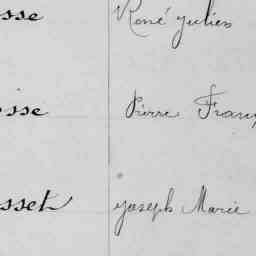 sse René Julien
sse Pierre Franç
sset Joseph Marie